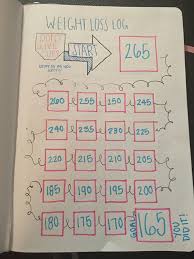 WEIGHT LOSS LOG
DON'T
GIVE
UP!
START
265
260 255 250 245
240 235 230 225
220 215 210 205
185 190 195 200
180 175 170
GOAL:
165
YOU
DID IT!